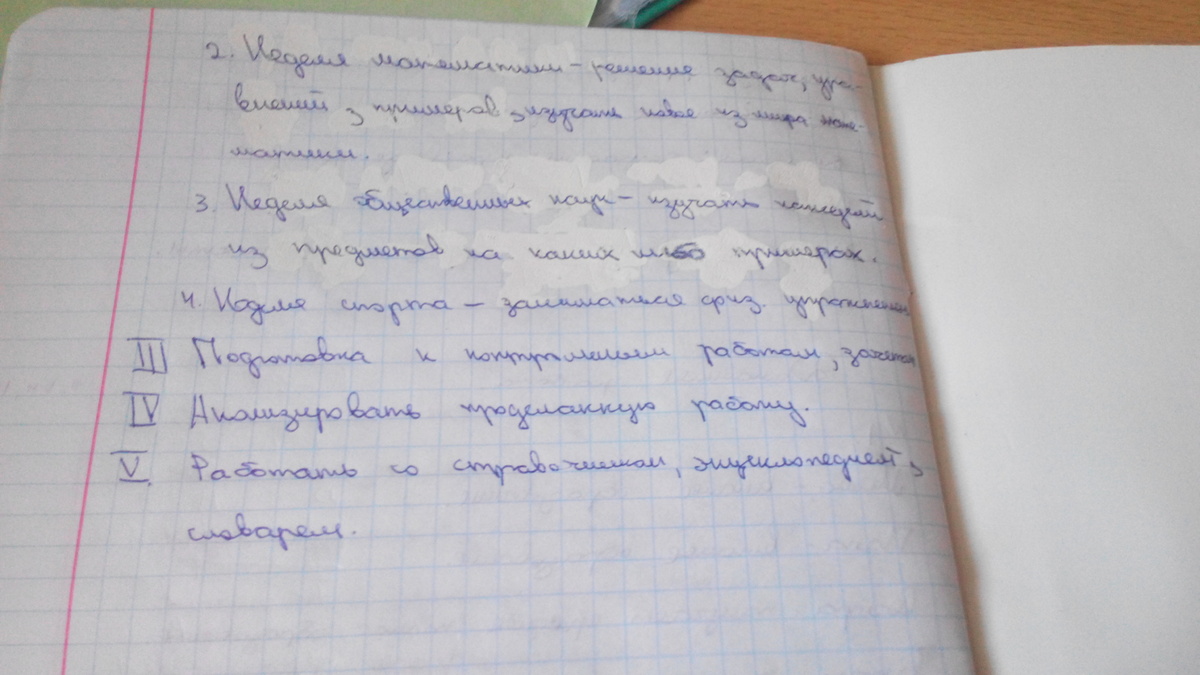 2. Неделя математики – решение задач, урав-
внений, примеров, изучать новое из мира мате-
матики.
3. Неделя общественных наук – изучать каждый
из предметов на каких либо примерах.
4. Неделя спорта – заниматься физ. упражнен
III Подготовка к контрольным работам, зачетам
IV Анализировать проделанную работу.
V. Работать со справочником, энциклопедией,
словарем.